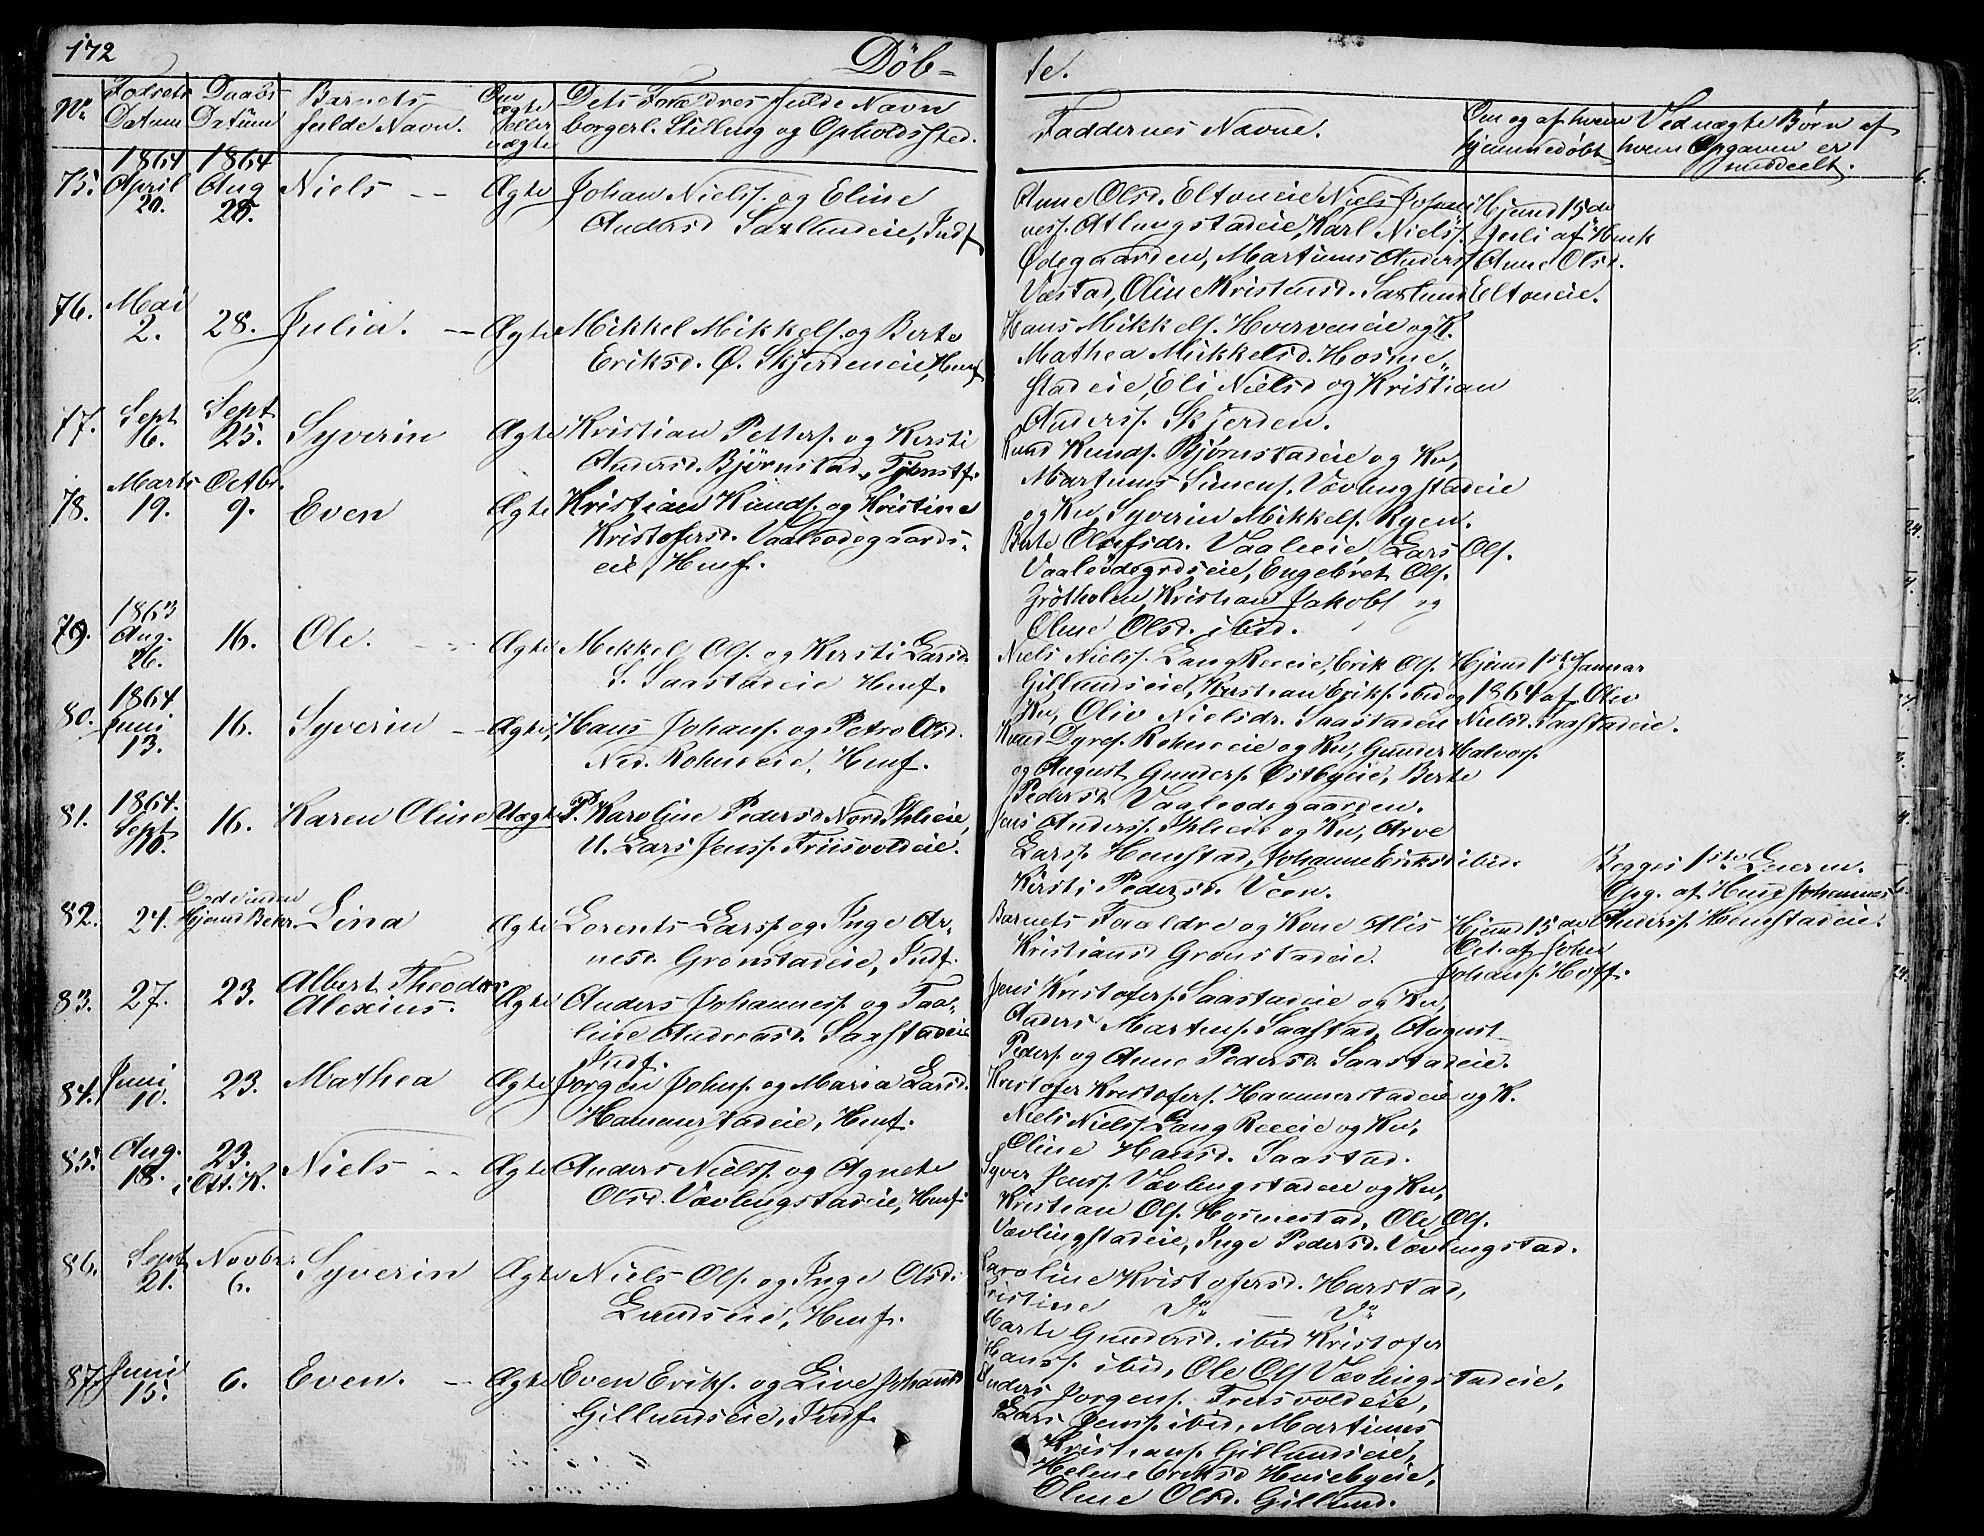 172
Döb-
te.
No.
Fødsels Datum
Daabs Datum
Barnets fulde Navn.
Om ægte eller uægte
Dets Forældres fulde Navn
borgerl. Stilling og Opholdssted.
Faddernes Navne.
Om og af hvem hjemmedøbt
Ved uægte Børn af
hvem Opgaven er
meddeelt.
75. 1864 April 20. 1864 Aug 28. Niels Ægte Johan Nielss. og Eline
Andersd Saxlundeie, Indf
Anne Olsd. Eltoneie Niels Johan-
ness. Atlungstadeie, Karl Nielss.
Ødegaarden, Martinus Anderss
Vestad, Oline Kristensd. Saxlund
Hjemd 15de
Juli af Husk
Anne Olsd.
Eltoneie.
76. Mai 2. 28. Julia. Ægte Mikkel Mikkelss. og Berte
Eriksd. Ø. Skjerdeneie, Husf
Hans Mikkelss. Hverveneie og K.
Mathea Mikkelsd. Hosme-
stadeie, Eli Nielsd og Kristian
Anderss. Skjerden.
77. Sept 6. Sept 25. Syverin Ægte Kristian Petterss. og Kersti
Andersd. Bjørnstad, Tjenstf.
Knud Knuds. Bjørnstadeie og Kv,
Martinus Simens. Vævlingstadeie
og Kv, Syverin Mikkelss. Ryen.
78. Marts 19. Octbr. 9. Even Ægte Kristian Knuds. og Kristine
Kristofersd. Vaaleødegaards-
eie, Husf.
Berte Olufsdr. Vaaleeie, Lars Ols.
Vaaleødegrdseie, Engebret Ols.
Grötholen, Kristian Jakobs og
Oline Olsd. ibid.
79. 1863 Aug. 26. 16. Ole. Ægte Mikkel Ols. og Kersti Larsd.
S. Saastadeie Husf.
Niels Nielss. Lang Reeeie, Erik Ols.
Gillundseie, Kristian Eriks. ibid og
Kv, Oliv Nielsdr. Saastadeie
Hjemd 1ste Januar
1864 af Oliv
Nielsd. Saastadeie.
80. 1864 Juni 13. 16. Syverin Ægte, Hans Johans. og Petra Olsd.
Ned. Rohneeie, Husf.
Knud Dyres. Rohneeie og Kv, Gunder Halvors.
og August Gunders. Østbyeie, Berte
Pedersd. Vaaleødegaarden.
81. 1864. Sept 10. 16. Karen Oline Uægte P. Karoline Pedersd Nord Ihleeie,
U. Lars Jenss. Friisvoldeie.
Jens Anderss. Ihleeie og Kv, Arve
Larss. Hemstad, Johanne Eriksd ibid.
Kirsti Pedersd. Veen.
Begges 1ste Leierm.
Opg. af Husf Johannes
Anderss. Hemstadeie.
82. 24. Død inden Hjemd Bekr. Lina Ægte Lorents Larss. og Inge Ar-
nesd. Grønstadeie, Indf.
Barnets Forældre og Kone Alis
Kristiansd Grønstadeie.
Hjemd 15 de
Oct. af Johan
Johans. Hoff.
83. 27. 23. Albert Theodor Alexius. Ægte Anders Johanness. og Paa-
line Andreasd. Saastadeie
Indf.
Jens Kristofers. Saastadeie og Kv,
Anders Martins. Saastad, August
Peders. og Anne Pedersd. Saastadeie.
84. Juni 10. 23. Mathea Ægte Jorgen Johns. og Maria Larsd.
Hammerstadeie, Husf.
Kristofer Kristofers. Hammerstadeie og K.
Niels Nielss. Lang Reeeie og Kv,
Oline Hansd. Saastad.
85. Aug. 18. 23. i Ott. K. Niels Ægte Anders Nielss. og Agnete
Olsd. Vævlingstadeie, Husf.
Syver Jenss. Vævlingstadeie og Kv,
Kristian Ols. Hosmestad, Ole Ols.
Vævlingstadeie, Inge Pedersd. Vævlingstad.
86. Sept 21. Novbr. 6. Syverin Ægte Niels Ols. og Inge Olsd.
Lundseie, Husf.
Karoline Kristofersd. Harstad,
Kristine Do — Do
Marte Gundersd. ibid Kristofer
Hanss. ibid, Ole Ols Vævlingstadeie,
87. Juni 15. 6. Even. Ægte Even Eriks. og Live Johansd
Gillundseie, Indf.
Anders Jorgens. Friisvoldeie,
Lars Jenss. ibid, Martinus
Kristians. Gillundseie,
Helene Eriksd Husebyeie,
Oline Olsd. Gillund.